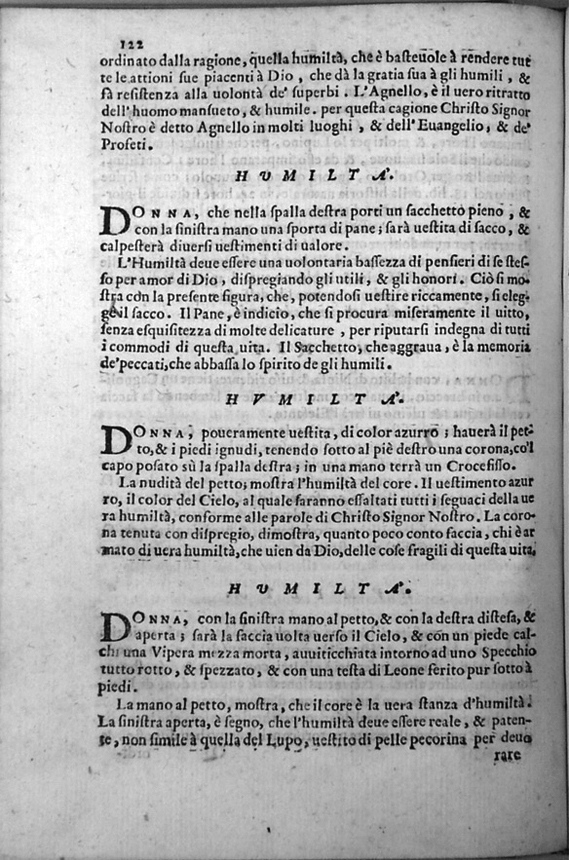 122
ordinato dalla ragione, quella humiltà, che è basteuole à rendere tut
te le attioni sue piacenti à Dio, che dà la gratia sua à gli humili, &
fà resistenza alla uolontà de' superbi. L'Agnello, è il uero ritratto
dell'huomo mansueto, & humile. per questa cagione Christo Signor
Nostro è detto Agnello in molti luoghi, & dell'Euangelio, & de'
Profeti.
HUMILTA'.
DONNA, che nella spalla destra porti un sacchetto pieno, &
con la sinistra mano una sporta di pane; sarà uestita di sacco, &
calpesterà diuersi uestimenti di ualore.
L'Humiltà deue essere una uolontaria bassezza di pensieri di se stes-
so per amor di Dio, dispregiando gli utili, & gli honori. Ciò si mo-
stra con la presente figura, che, potendosi uestire riccamente, si eleg-
ge il sacco. Il Pane, è indicio, che si procura miseramente il uitto,
senza esquisitezza di molte delicature, per riputarsi indegna di tutti
i commodi di questa uita. Il Sacchetto, che aggraua, è la memoria
de'peccati, che abbassa lo spirito de gli humili.
HVMILTA'.
DONNA, poueramente uestita, di color azurro; hauerà il pet-
to, & i piedi ignudi, tenendo sotto al piè destro una corona, co'l
capo posato sù la spalla destra; in una mano terrà un Crocefisso.
La nudità del petto, mostra l'humiltà del core. Il uestimento azur
ro, il color del Cielo, al quale faranno essaltati tutti i seguaci della ue
ra humiltà, conforme alle parole di Christo Signor Nostro. La coro-
na tenuta con dispregio, dimostra, quanto poco conto faccia, chi è ar
mato di uera humiltà, che uien da Dio, delle cose fragili di questa uita.
HUMILTA'.
DONNA, con la sinistra mano al petto, & con la destra distesa, &
aperta; sarà la faccia uolta uerso il Cielo, & con un piede cal-
chi una Vipera mezza morta, auuiticchiata intorno ad uno Specchio
tutto rotto, & spezzato, & con una testa di Leone ferito pur sotto à
piedi.
La mano al petto, mostra, che il core è la uera stanza d'humiltà.
La sinistra aperta, è segno, che l'humiltà deue essere reale, & paten-
te, non simile à quella del Lupo, uestito di pelle pecorina per deuo
rare